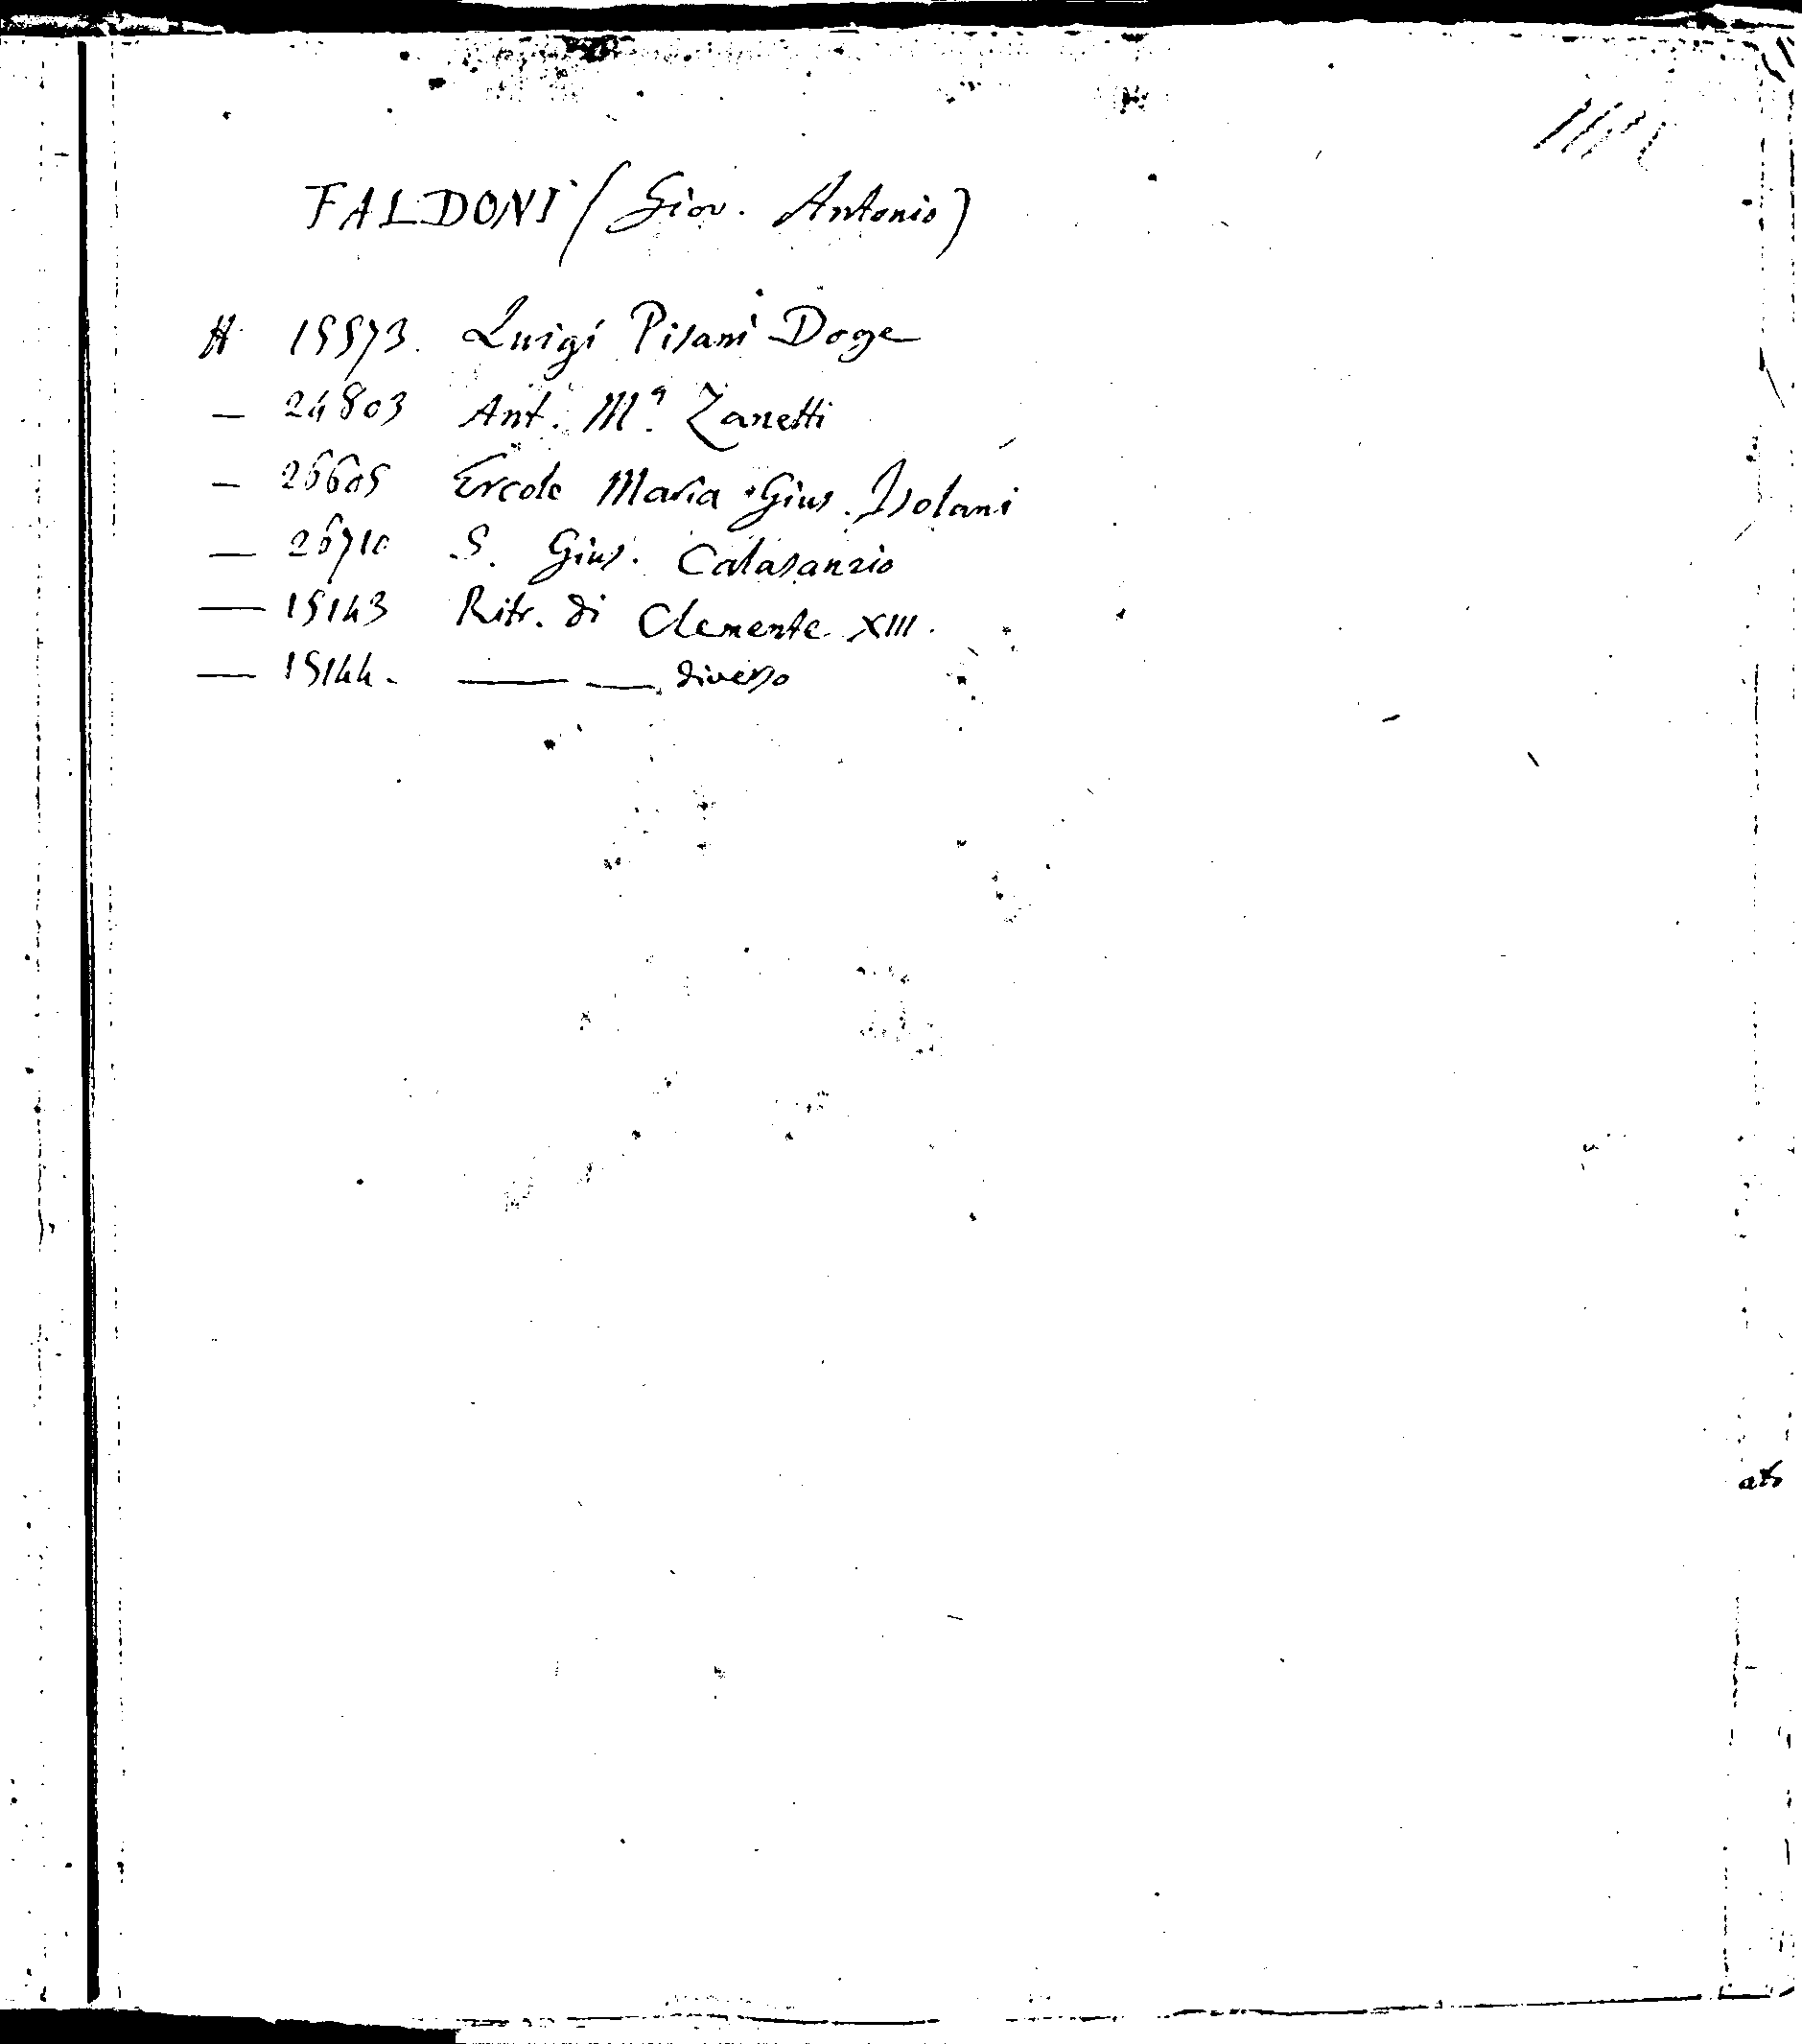 FALDONI (Giov. Antonio)
H 15573. Luigi Pisani Doge
— 24803 Ant. Mª. Zanetti
— 26605 Ercole Maria Gius. Isolani
— 26710 S. Gius. Calasanzio
— 15143 Ritr. di Clemente XIII.
— 15144. — — diverso